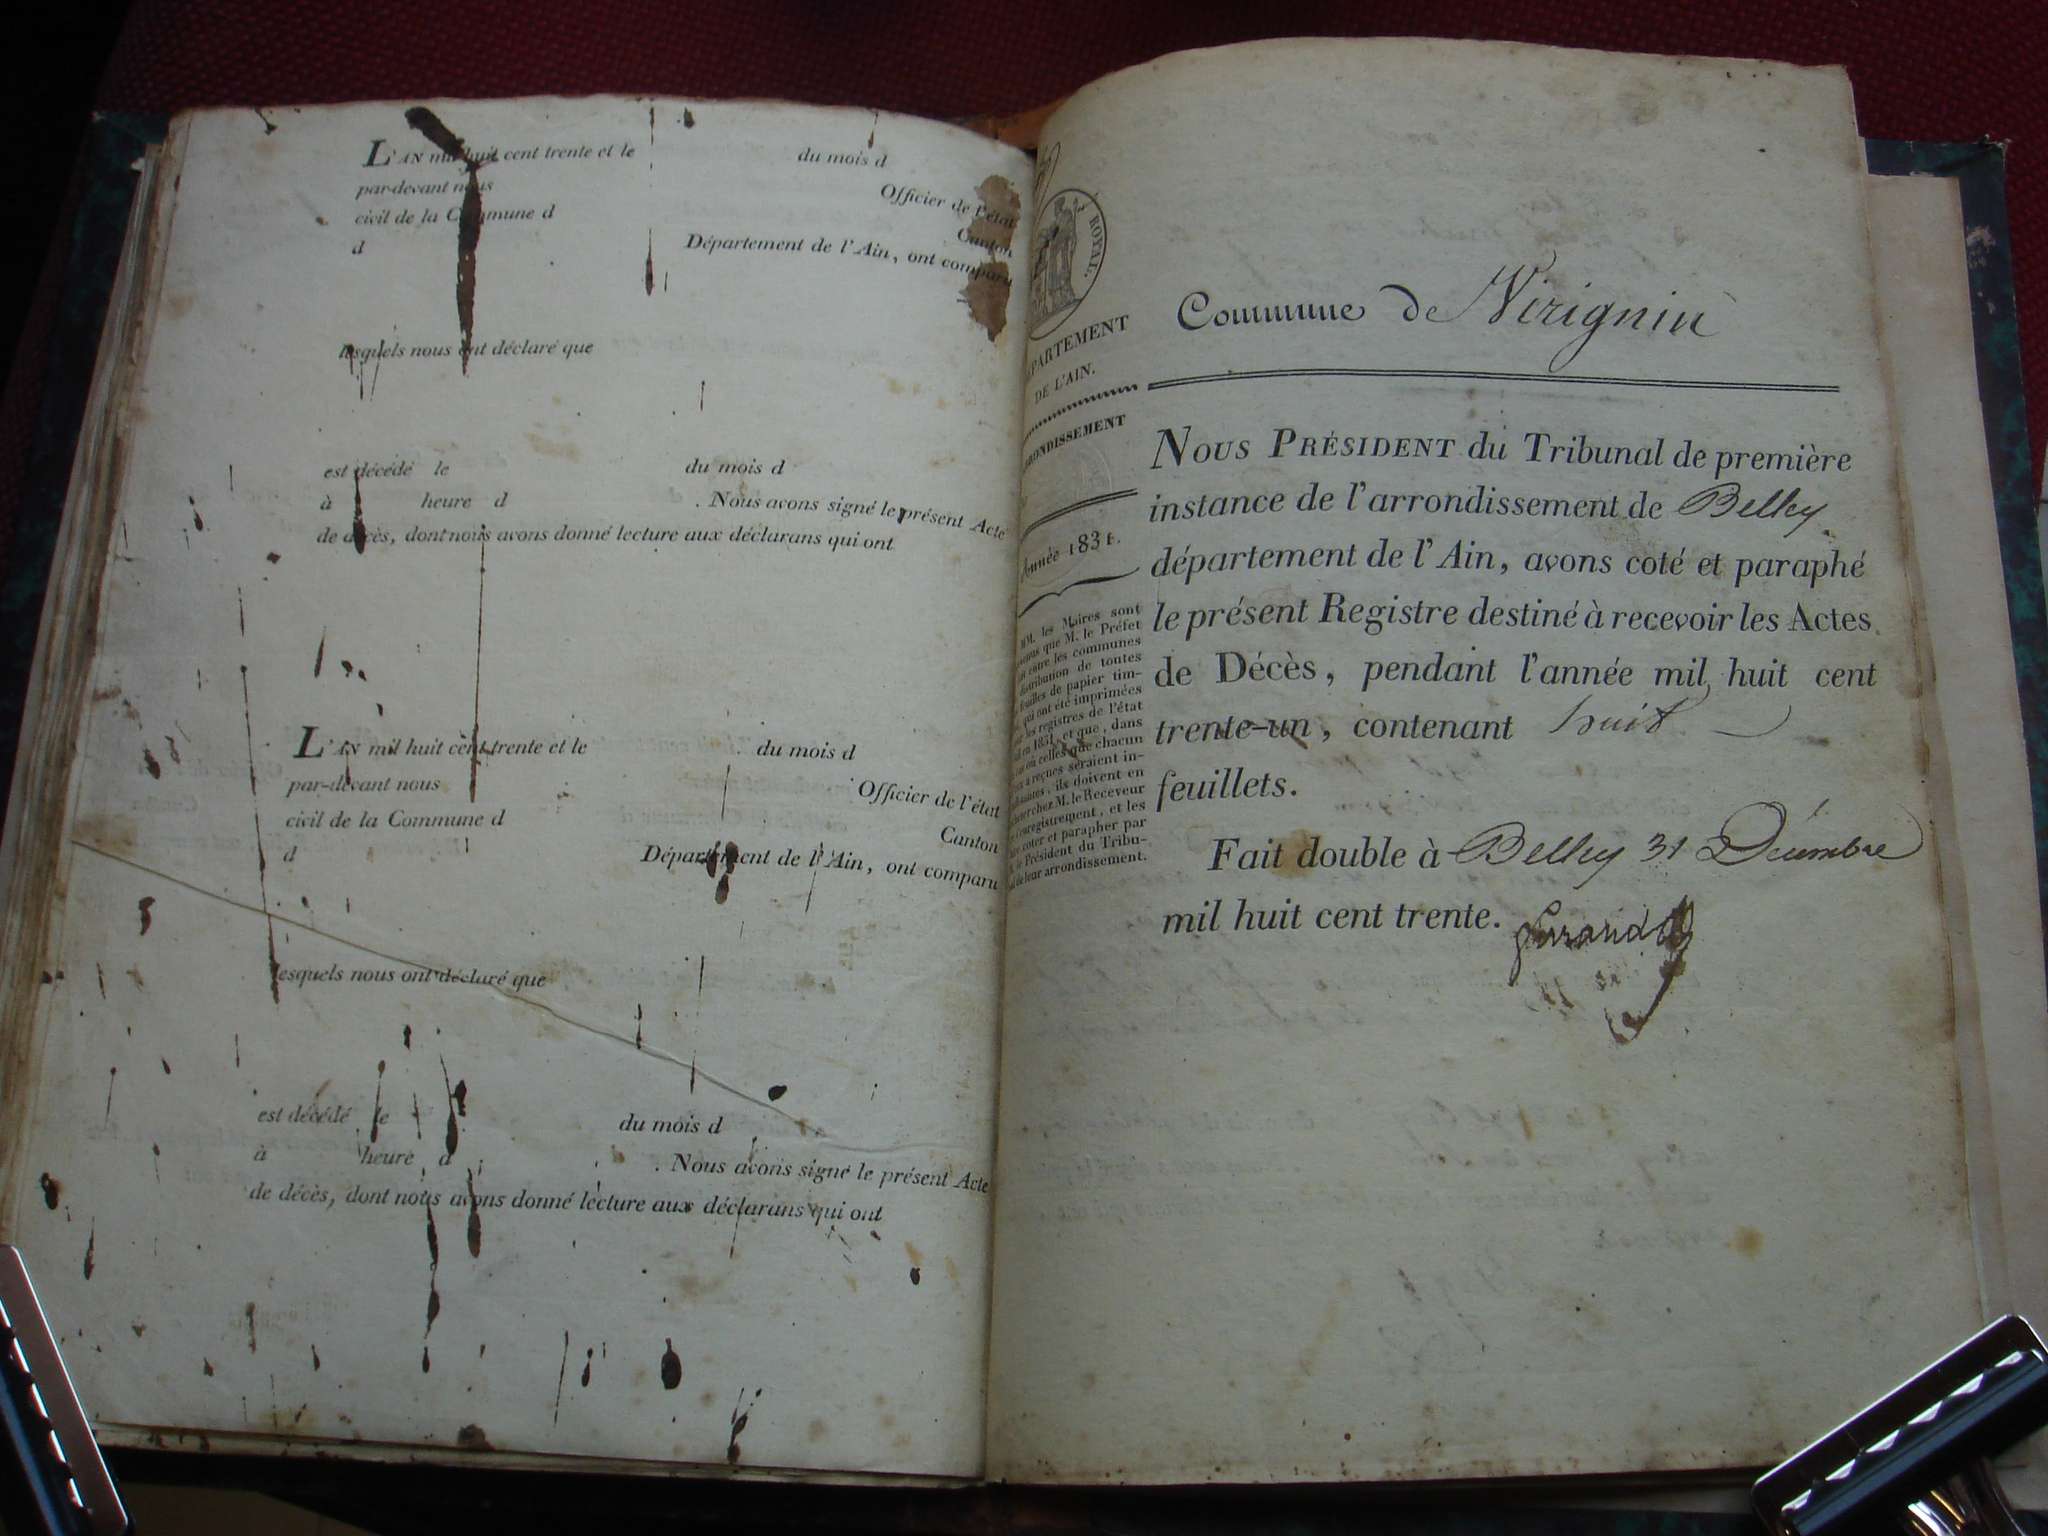 L'AN mil huit cent trente et le du mois d
par-devant nous
Officier de l'état
civil de la Commune d
Canton
d Département de l'Ain, ont comparu
lesquels nous ont déclaré que
est décédé le du mois d
à heure d . Nous avons signé le présent Acte
de décès, dont nous avons donné lecture aux déclarans qui ont
L'AN mil huit cent trente et le du mois d
par-devant nous
Officier de l'état
civil de la Commune d
Canton
d Département de l'Ain, ont comparu
lesquels nous ont déclaré que
est décédé le du mois d
à heure d . Nous avons signé le présent Acte
de décès, dont nous avons donné lecture aux déclarans qui ont
ROYAL.
PARTEMENT
DE L'AIN.
RONDISSEMENT
Année 1831.
MM. les Maires sont
que M. le Préfet
entre les communes
distribution de toutes
feuilles de papier tim-
qui ont été imprimées
les registres de l'état
en 1831, et que, dans
où celles que chacun
a reçues seraient in-
ils doivent en
chez M. le Receveur
Enregistrement, et les
coter et parapher par
le Président du Tribu-
de leur arrondissement.
Commune de Virignin
NOUS PRÉSIDENT du Tribunal de première
instance de l'arrondissement de Belley
département de l'Ain, avons coté et paraphé
le présent Registre destiné à recevoir les Actes
de Décès, pendant l'année mil huit cent
trente-un, contenant huit
feuillets.
Fait double à Belley 31 Décembre
mil huit cent trente.